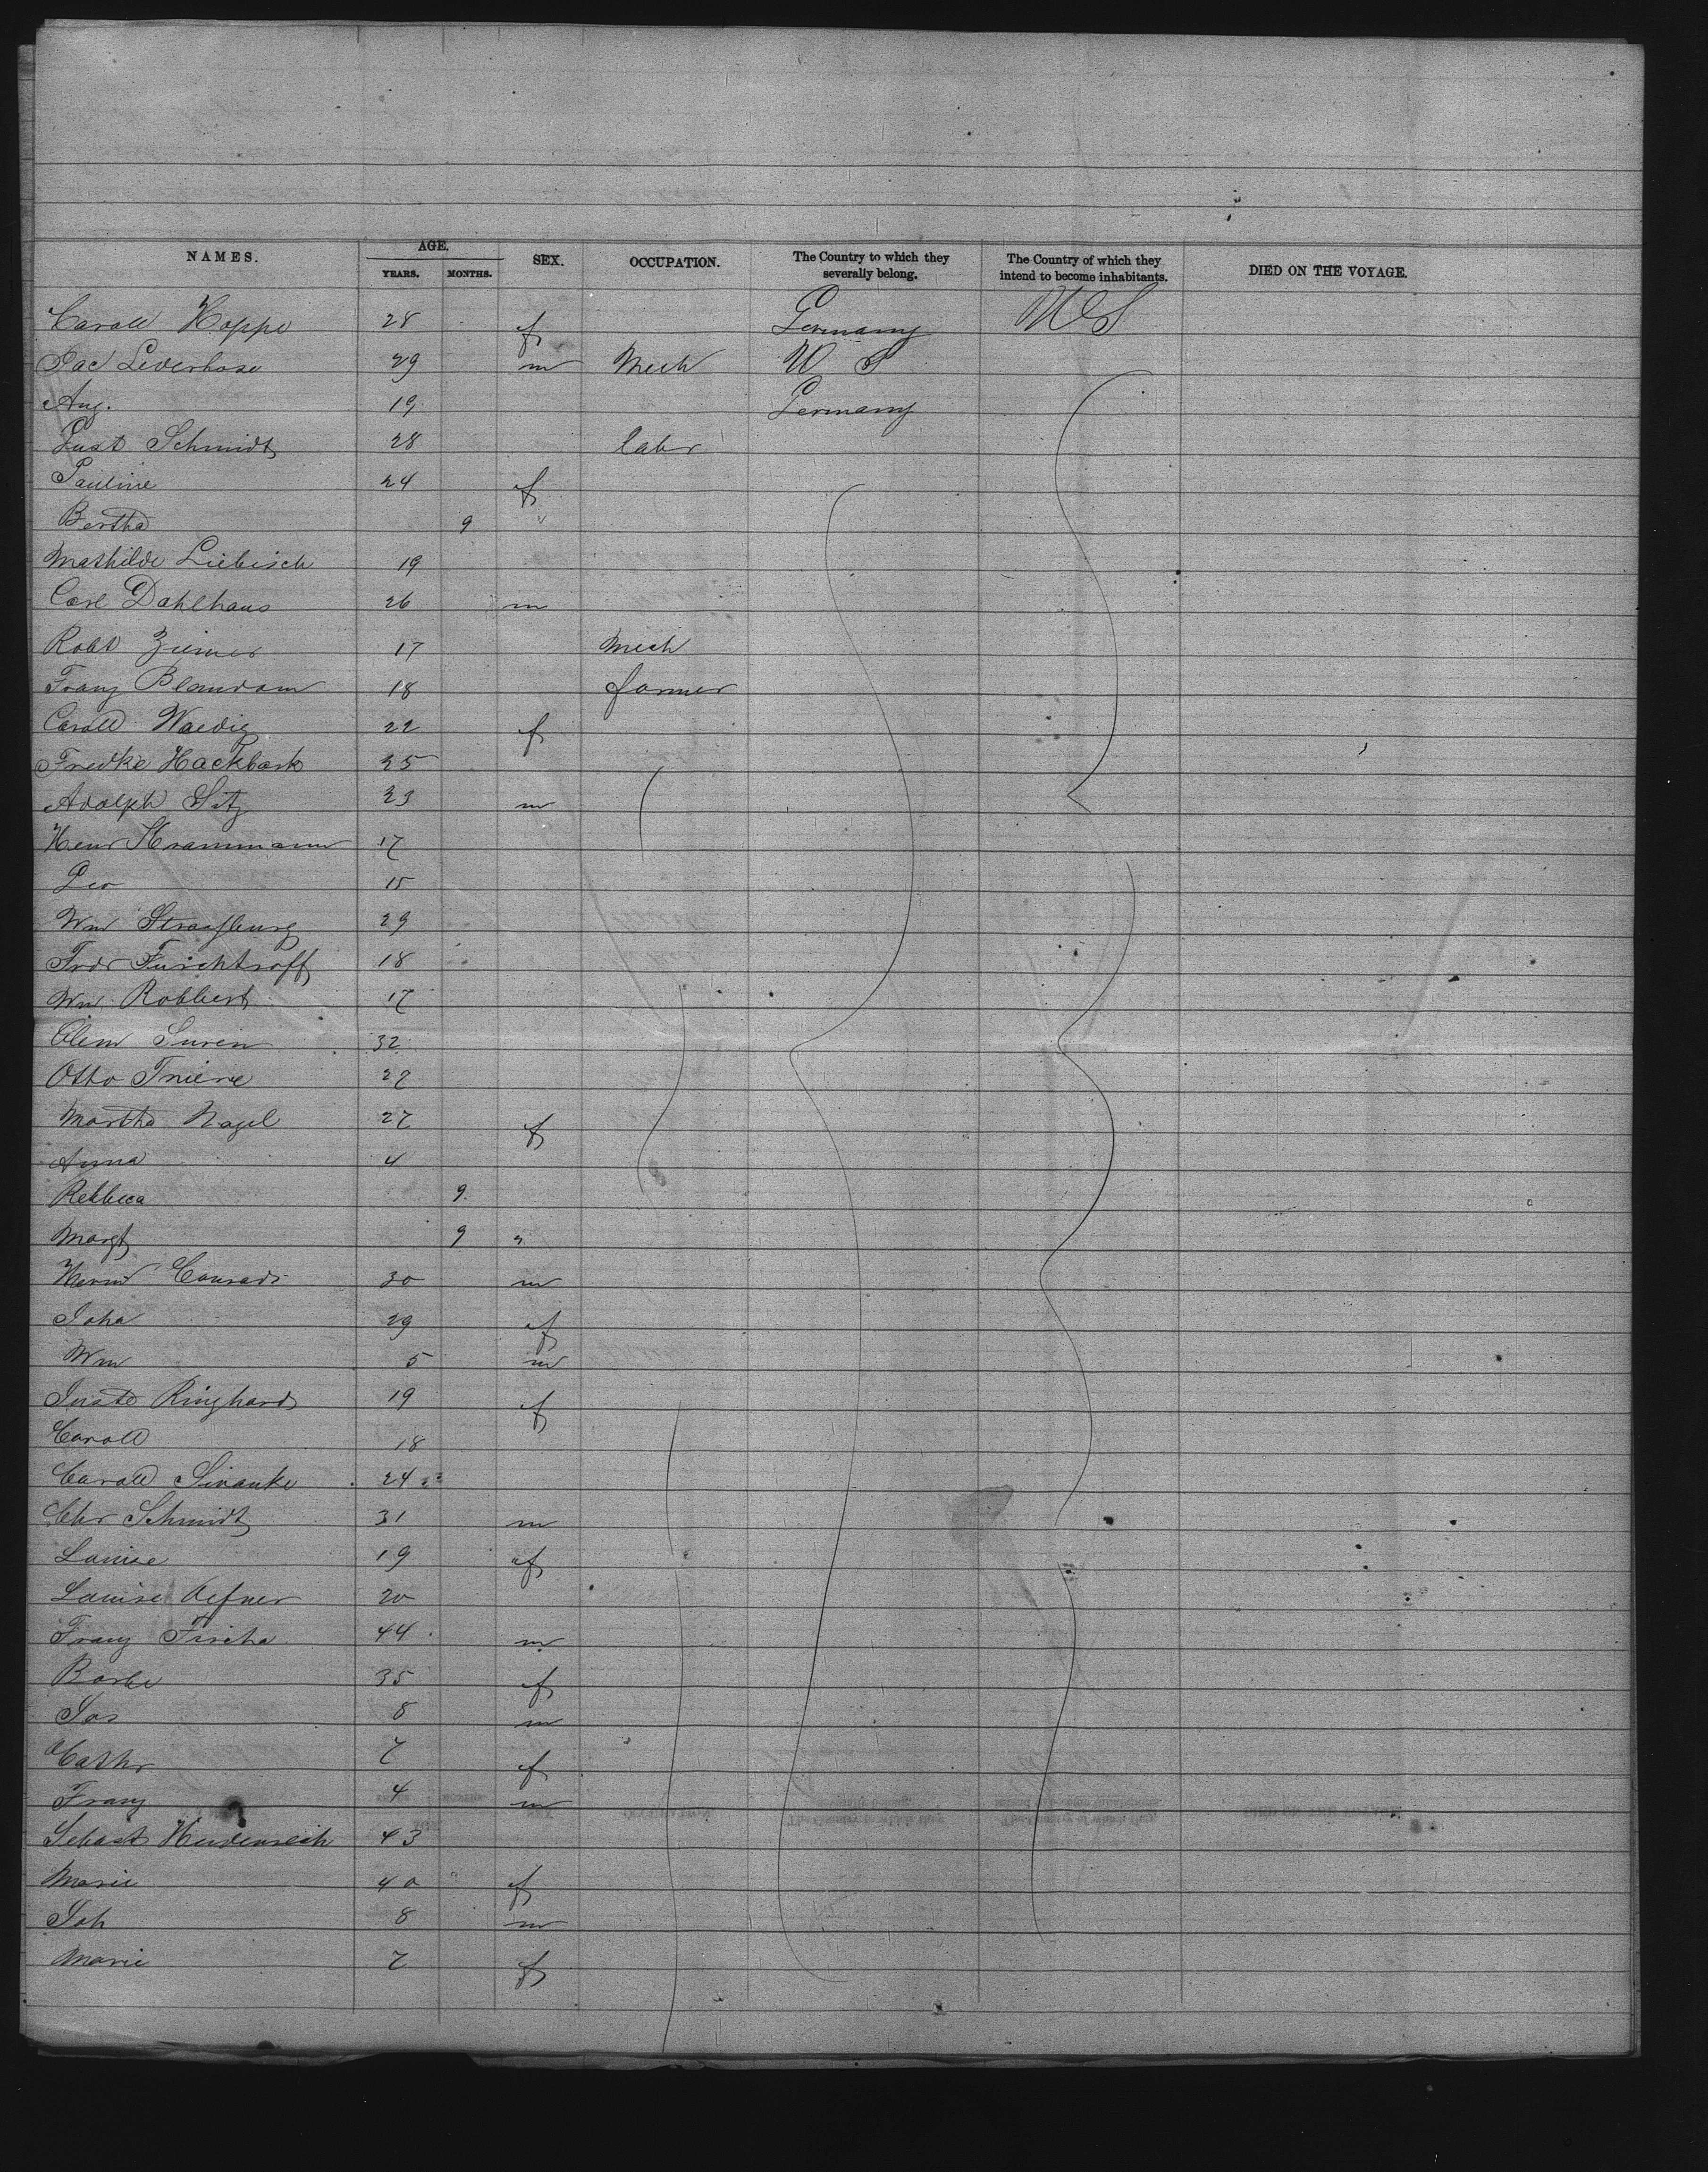 NAMES. AGE. SEX. OCCUPATION. The Country to which they severally belong. The Country of which they intend to become inhabitants. DIED ON THE VOYAGE.
YEARS. MONTHS.
Caroll Hoppe 28 f Germany U S
Jac Lederhose 29 m Mech U S
Aug. 19 Germany
Gust Schmidt 28 labr
Pauline 24 f
Bertha 9 "
Mathilde Liebisch 19
Carl Dahlhaus 26 m
Robt Ziemer 17 Mech
Franz Blandam 18 farmer
Caroll Waedig 22 f
Fredke Hackbart 25
Adolph Sitz 23 m
Henr Krammann 17
Leo 15
Wm Strassburg 29
Fror Furchtroff 18
Wm Robbert 17
Clem Suren 32
Otto Triene 27
Martha Nagel 27 f
Anna 4
Rebbeca 9
Margt 9 "
Herm Conrads 30 m
Joha 29 f
Wm 5 m
Juste Ringhard 19 f
Caroll 18
Caroll Sinanke 24
Chr Schmidt 31 m
Louise 19 f
Louise Oefner 20
Franz Fischa 44 m
Barbe 35 f
Jos 8 m
Cathr 7 f
Franz 4 m
Sebast Heidenreich 43
Marie 40 f
Joh 8 m
Marie 7 f